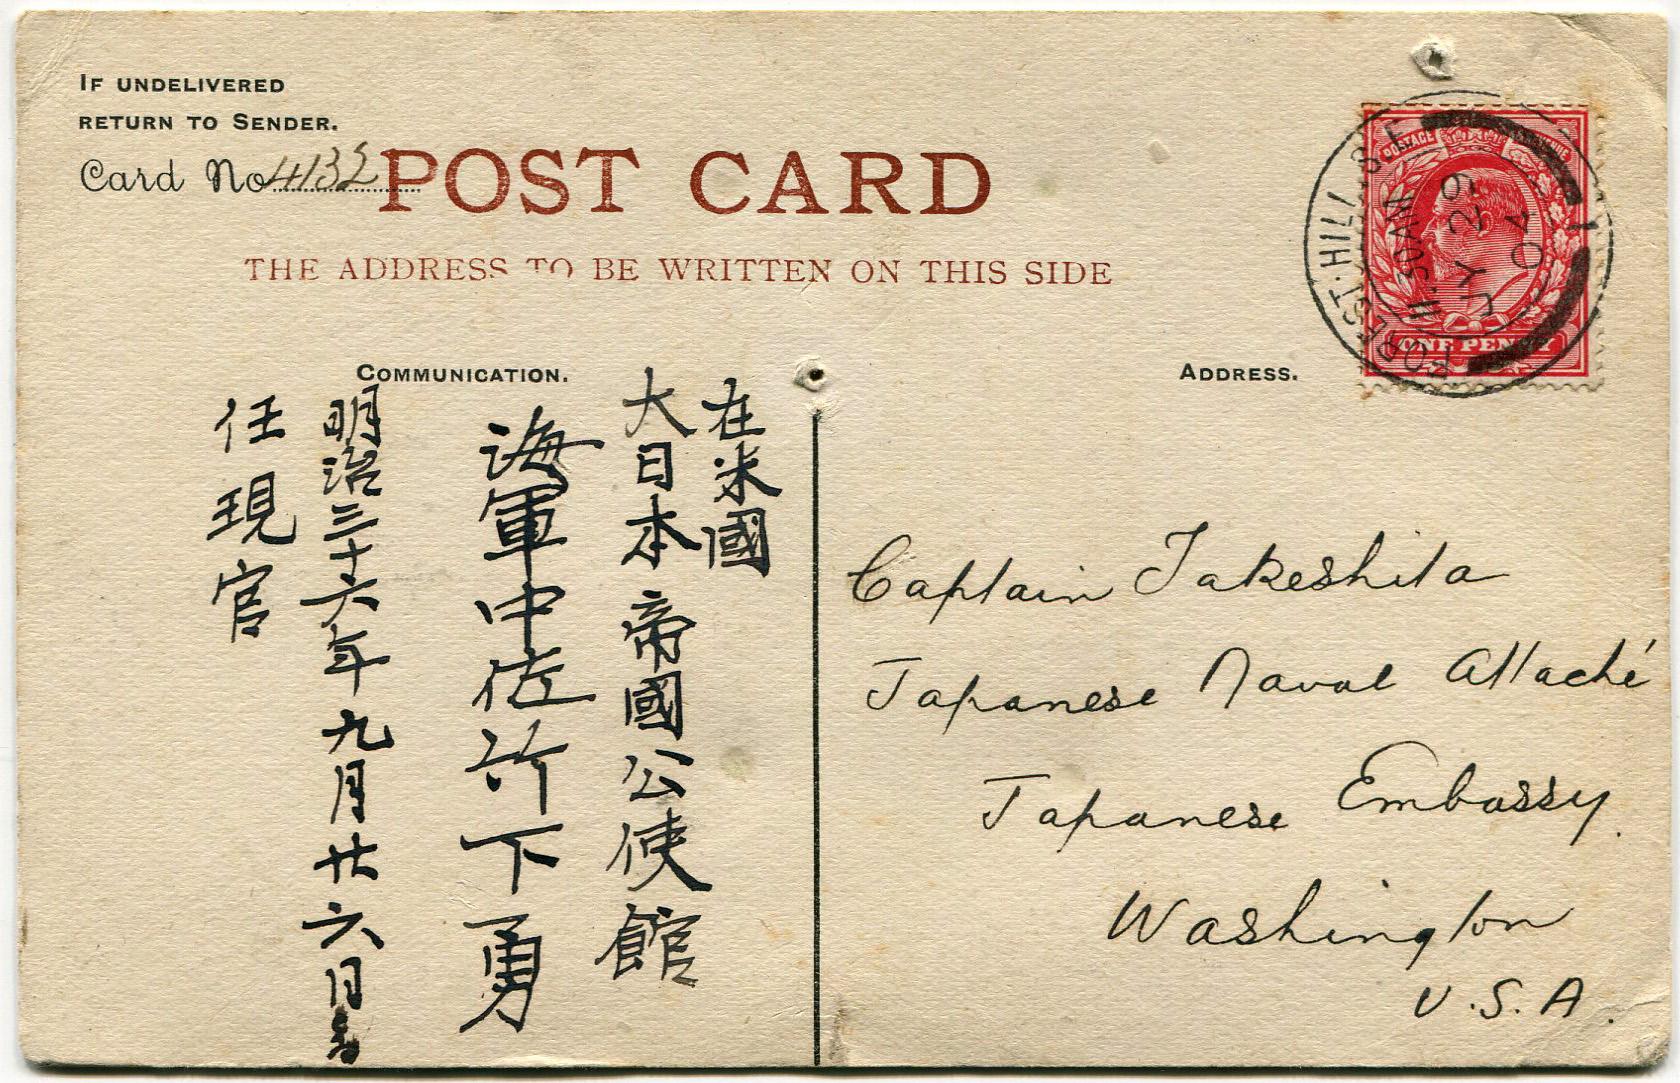 IF UNDELIVERED
RETURN TO SENDER.
Card No 4132
POST CARD
THE ADDRESS TO BE WRITTEN ON THIS SIDE
COMMUNICATION.
在米國
大日本帝國公使館
海軍中佐竹下勇
明治三十六年九月廿六日
任現官
ADDRESS.
Captain Takeshita
Japanese Naval Attaché
Japanese Embassy.
Washington
U.S.A.
POSTAGE
ONE PENNY
FOREST·HILL·S.E
11.30AM
JY 29
04
1